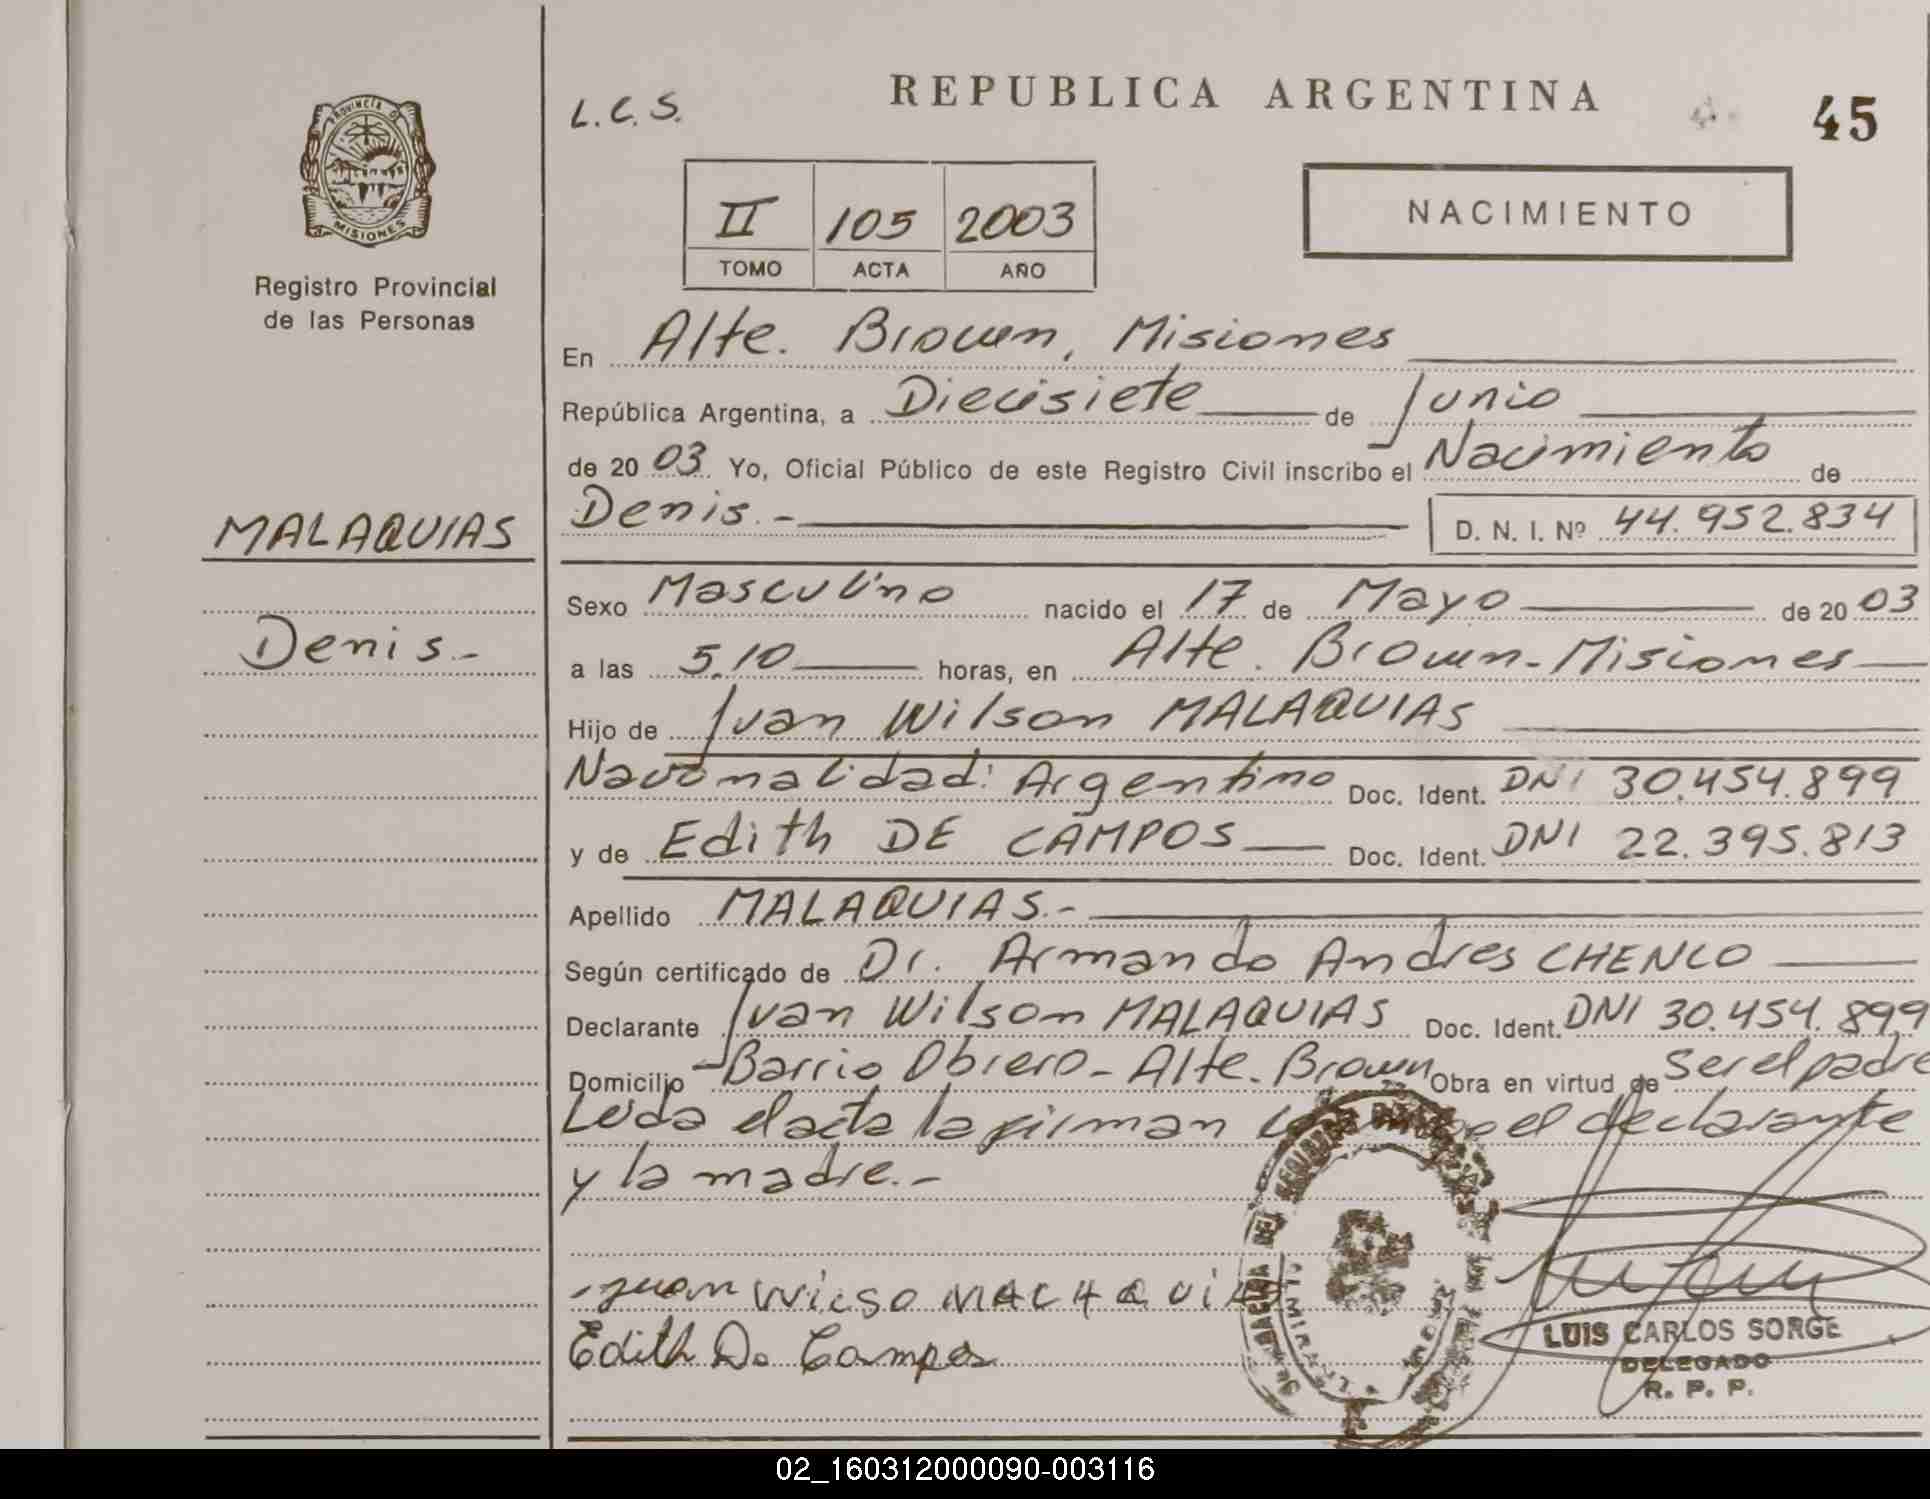 REPUBLICA ARGENTINA
L.C.S.
45
PROVINCIA DE
MISIONES
II 105 2003
TOMO ACTA AÑO
NACIMIENTO
Registro Provincial
de las Personas
En Alte. Brown, Misiones
República Argentina, a Diecisiete de Junio
de 2003 Yo, Oficial Público de este Registro Civil inscribo el Nacimiento de
MALAQUIAS
Denis.-
Denis.-
D. N. I. Nº 44.952.834
Sexo Masculino nacido el 17 de Mayo de 2003
a las 5,10 horas, en Alte. Brown-Misiones
Hijo de Ivan Wilson MALAQUIAS
Nacionalidad: Argentino Doc. Ident. DNI 30.454.899
y de Edith DE CAMPOS Doc. Ident. DNI 22.395.813
Apellido MALAQUIAS.-
Según certificado de Dr. Armando Andres CHENCO
Declarante Ivan Wilson MALAQUIAS Doc. Ident. DNI 30.454.899
Domicilio Barrio Obrero-Alte. Brown Obra en virtud de ser el padre
Leida el acta la firman el declarante
y la madre.-
Edith De Campos
LUIS CARLOS SORGE
DELEGADO
R. P. P.
02_160312000090-003116